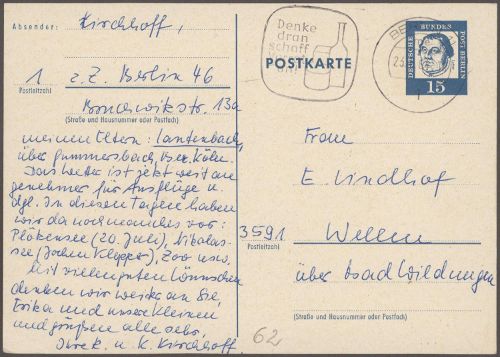 Absender: Kirchhoff,
1 z.Z. Berlin 46
Postleitzahl
13a
(Straße und Hausnummer oder Postfach)
meinen Eltern: Lantenbach,
über Gummersbach, Bez. Köln.
Das Wetter ist jetzt weit an-
genehmer für Ausflüge u.
dgl. In diesen Tagen haben
wir da noch manches vor:
Plötzensee (20. Juli), Nikolas-
see (Jochen Klepper), Zoo usw.
Mit vielen guten Wünschen
denken wir weiter an Sie,
Erika und unsere Kleinen
und grüßen alle sehr.
u. K. Kirchhoff
Denke
dran
schaff
POSTKARTE
DEUTSCHE BUNDESPOST BERLIN
15
Frau
E. Lindhof
3591
Postleitzahl
Wellen
über Bad Wildungen
(Straße und Hausnummer oder Postfach)
62